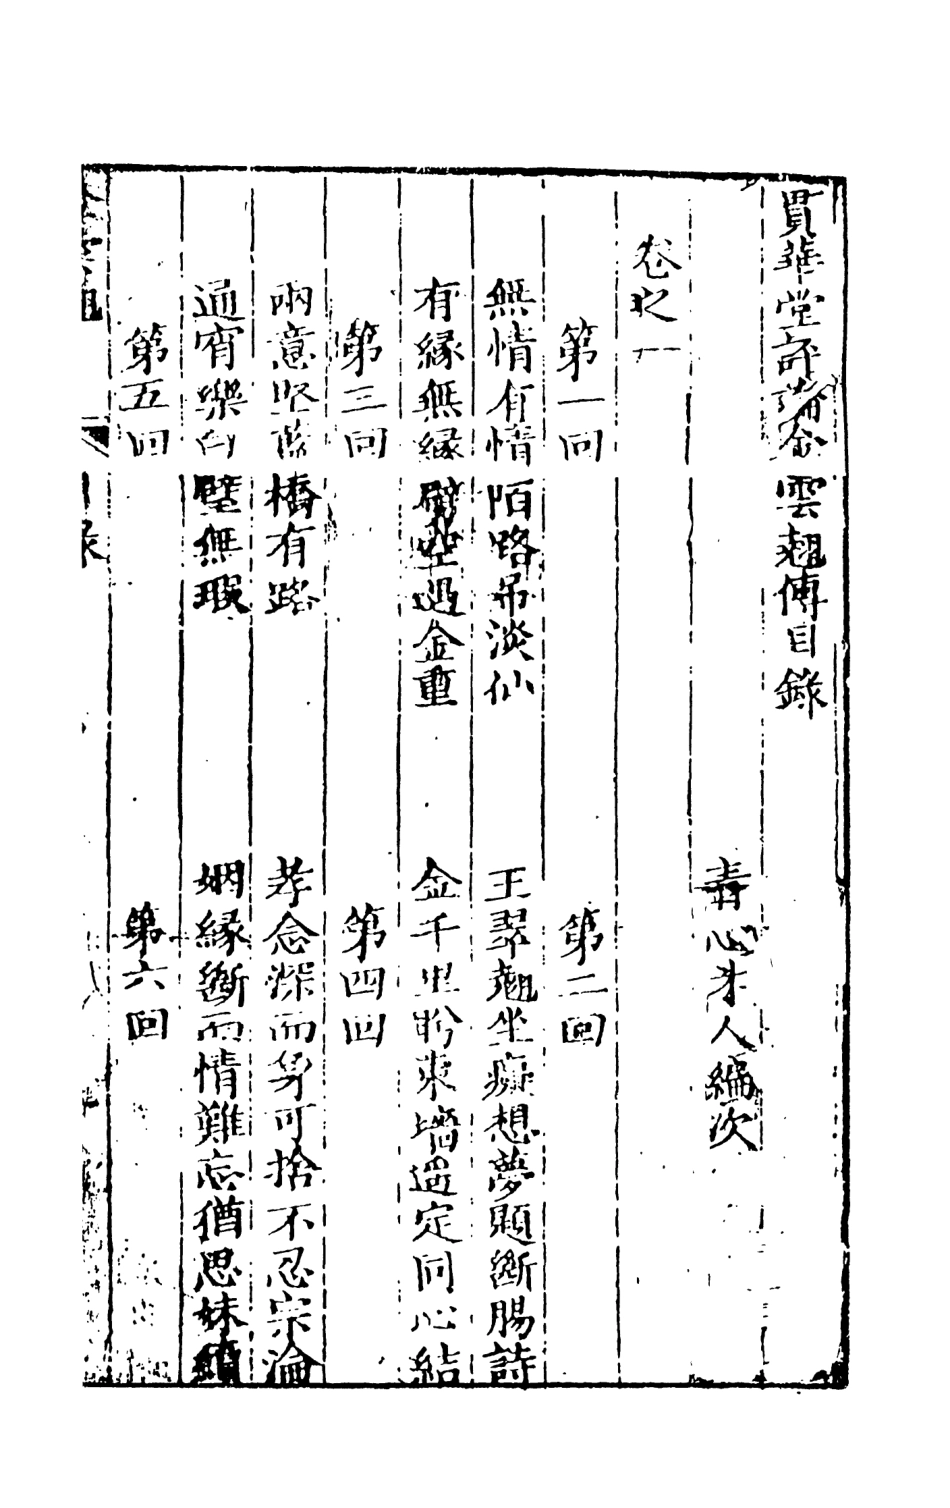 貫華堂評論金雲翹傳目錄
青心才人編次
卷之一
第一回　第二回
無情有情陌路吊淡仙　王翠翹坐癡想夢題斷腸詩
有緣無緣劈空遇金重　金千里盻東墻遥定同心結
第三回　第四回
兩意堅藍橋有路　孝念深而身可捨不忍宗淪
通宵樂白璧無瑕　姻緣斷而情難忘猶思妹續
第五回　第六回